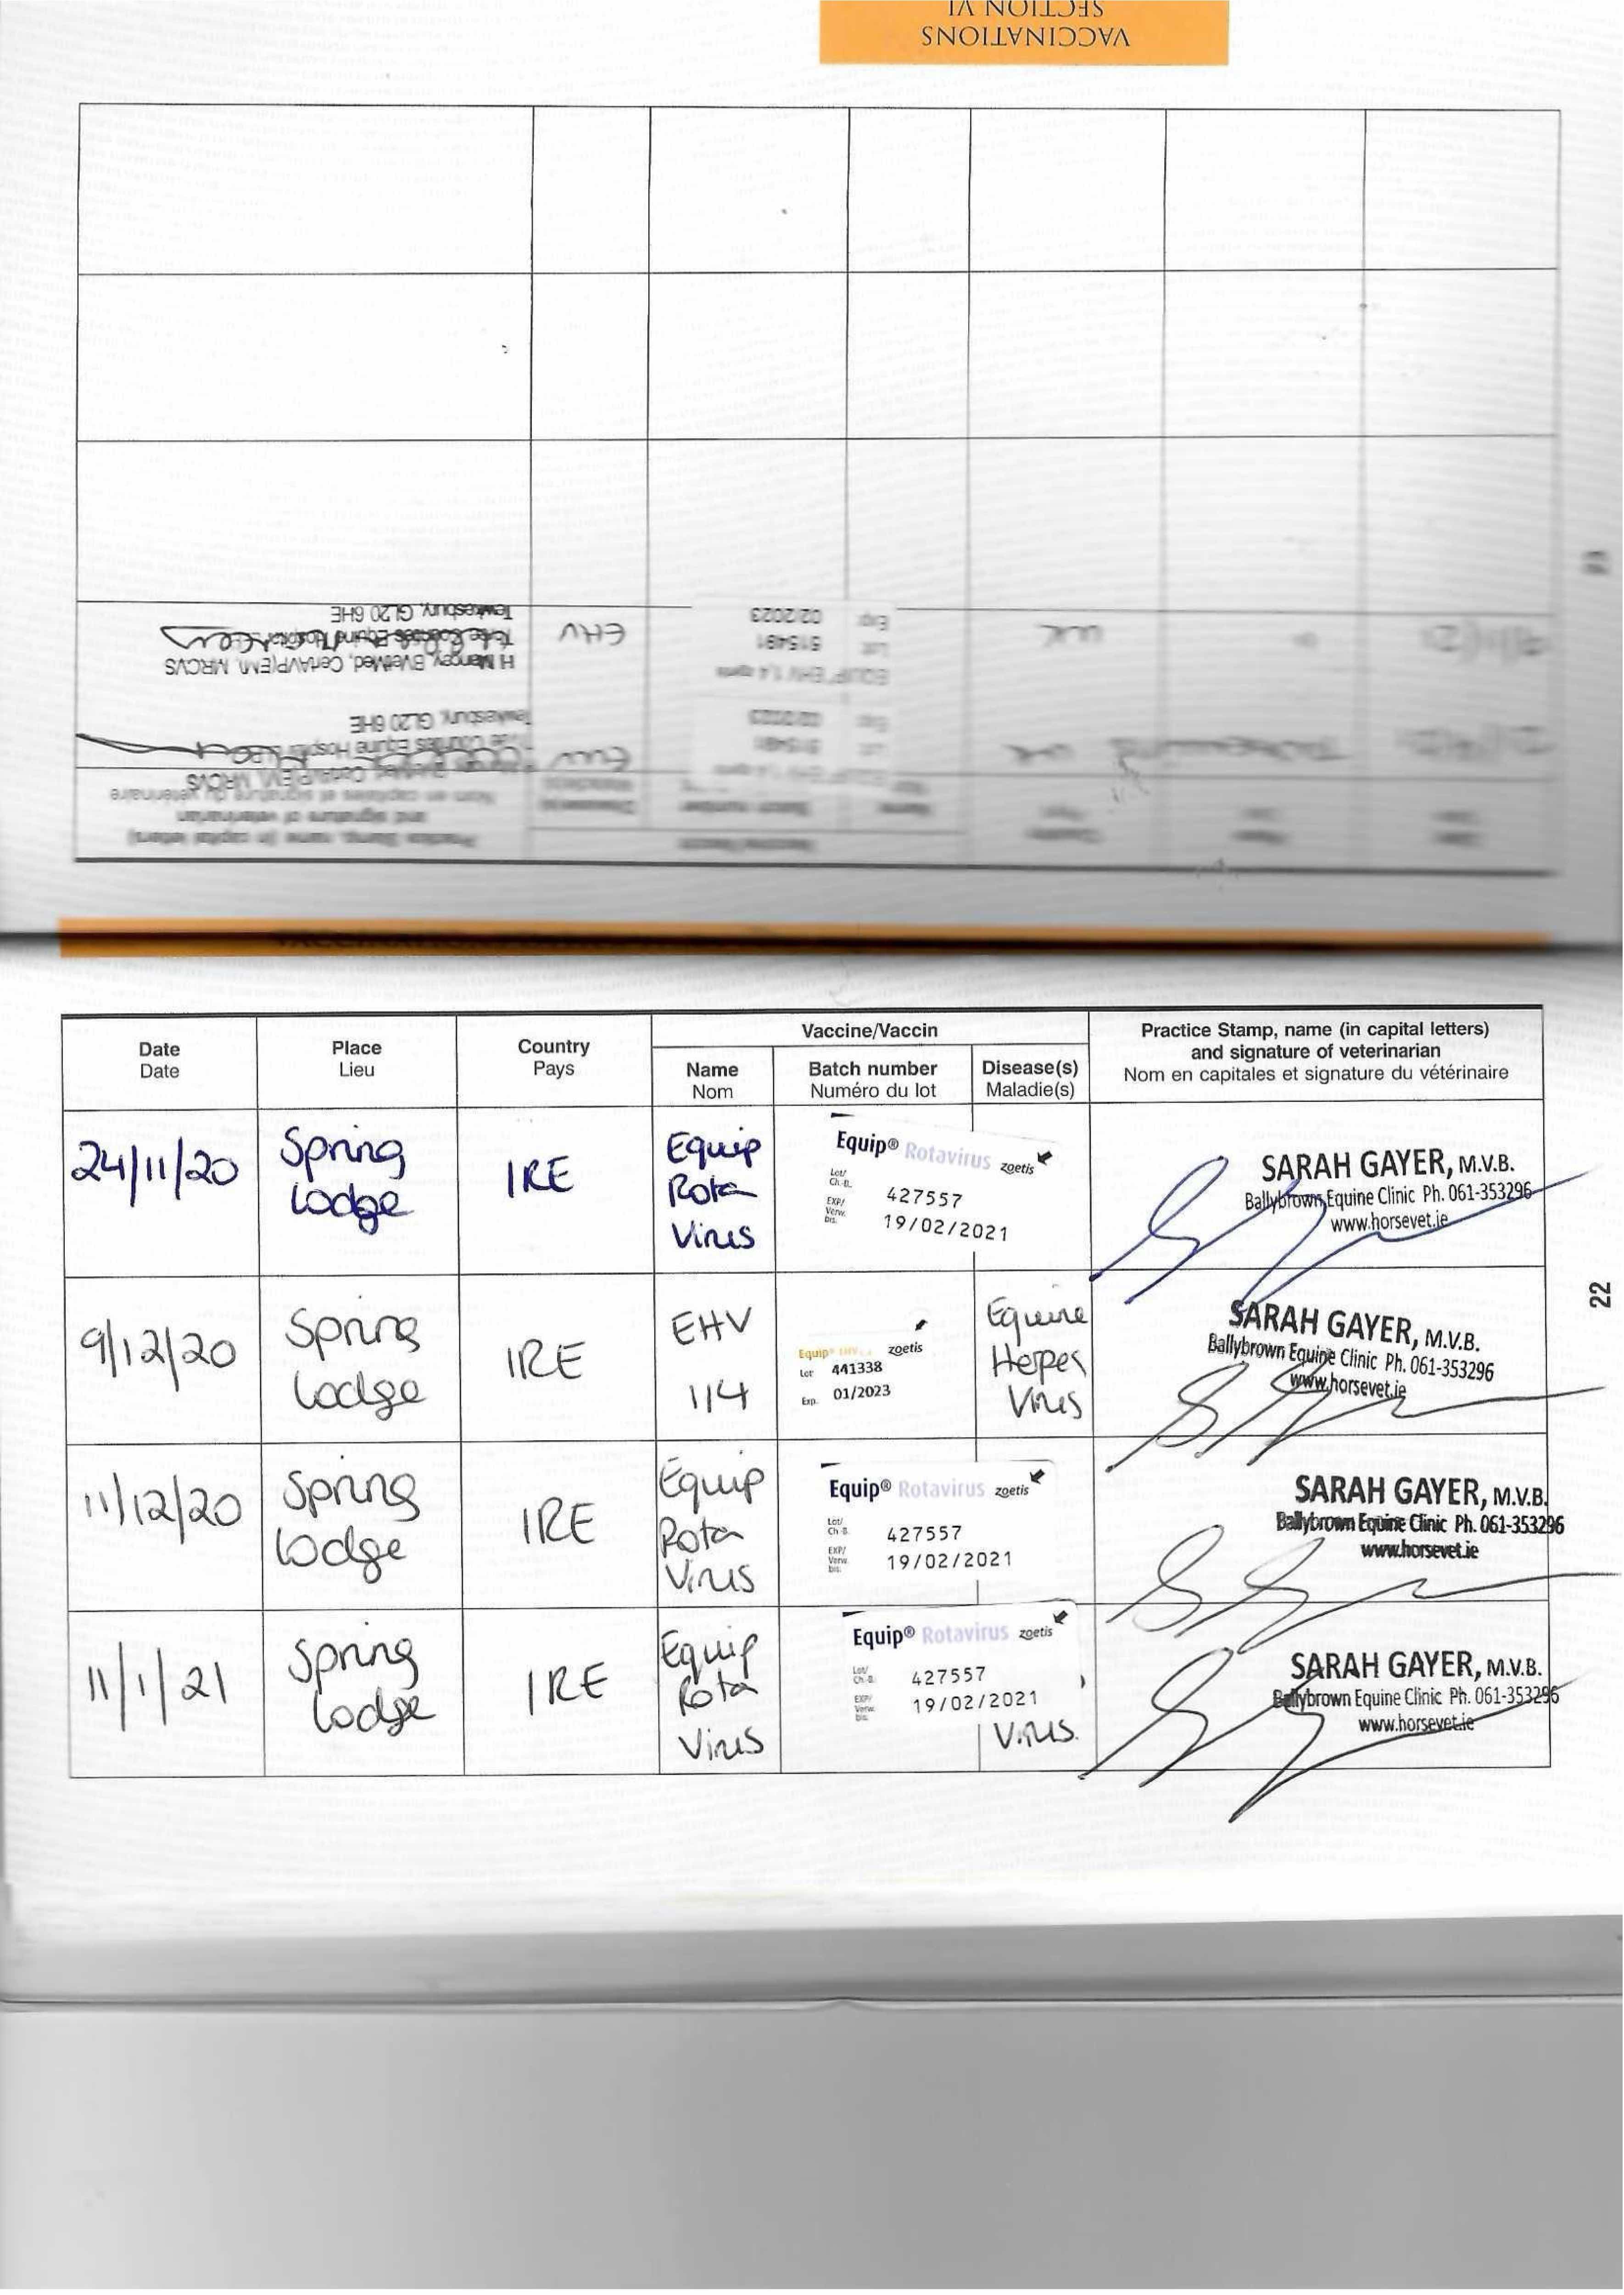 VACCINATIONS
SECTION VI
Practice Stamp, name (in capital letters)
and signature of veterinarian
Nom en capitales et signature du vétérinaire
Batch number
EHV 1,4
Lot 515491
Exp 02/2023
MRCVS
Equine Hospital
Tewkesbury, GL20 6HE
EQUIP EHV 1,4
Lot 515491
Exp 02/2023
EHV
H Mangey, BVetMed, CertAVP(EM), MRCVS
Equine Hospital
Tewkesbury, GL20 6HE
Date
Date
Place
Lieu
Country
Pays
Vaccine/Vaccin
Name
Nom
Batch number
Numéro du lot
Disease(s)
Maladie(s)
Practice Stamp, name (in capital letters)
and signature of veterinarian
Nom en capitales et signature du vétérinaire
24/11/20
Spring
Lodge
IRE
Equip
Rota
Virus
Equip® Rotavirus zoetis
Lot/
Ch.-B.
427557
EXP/
Verw.
bis:
19/02/2021
SARAH GAYER, M.V.B.
Ballybrown Equine Clinic Ph. 061-353296
www.horsevet.ie
9/12/20
Spring
Lodge
IRE
EHV
1/4
Equip® EHV 1,4 zoetis
Lot 441338
Exp. 01/2023
Equine
Herpes
Virus
SARAH GAYER, M.V.B.
Ballybrown Equine Clinic Ph. 061-353296
www.horsevet.ie
11/12/20
Spring
Lodge
IRE
Equip
Rota
Virus
Equip® Rotavirus zoetis
Lot/
Ch.-B.
427557
EXP/
Verw.
bis:
19/02/2021
SARAH GAYER, M.V.B.
Ballybrown Equine Clinic Ph. 061-353296
www.horsevet.ie
11/1/21
Spring
Lodge
IRE
Equip
Rota
Virus
Equip® Rotavirus zoetis
Lot/
Ch.-B.
427557
EXP/
Verw.
bis:
19/02/2021
Virus.
SARAH GAYER, M.V.B.
Ballybrown Equine Clinic Ph. 061-353296
www.horsevet.ie
22